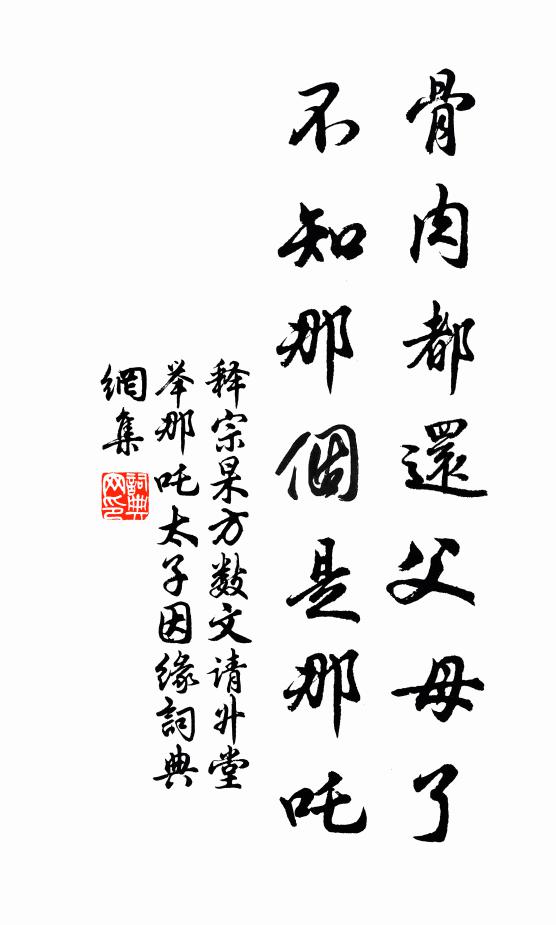 骨肉都還父母了
不知那個是那吒
释宗杲方敷文请升堂
举那吒太子因缘詞典
網集
詞典網印